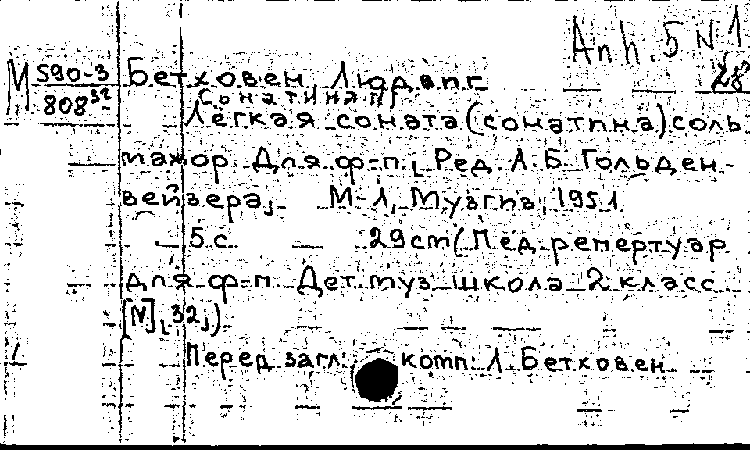 Anh. 5 N 1
28
М 590-3 Бетховен Людвиг
808
Сонатина
Легкая соната (сонатина) соль
мажор. Для ф-п., Ред. А. Б. Гольден-
вейзера, М-Л, Музгиз, 1951
5 с. 29 cm (Пед. репертуар
для ф-п. Дет. муз. школа 2 класс
[N], 32,)
1 Перед загл.: комп: Л. Бетховен